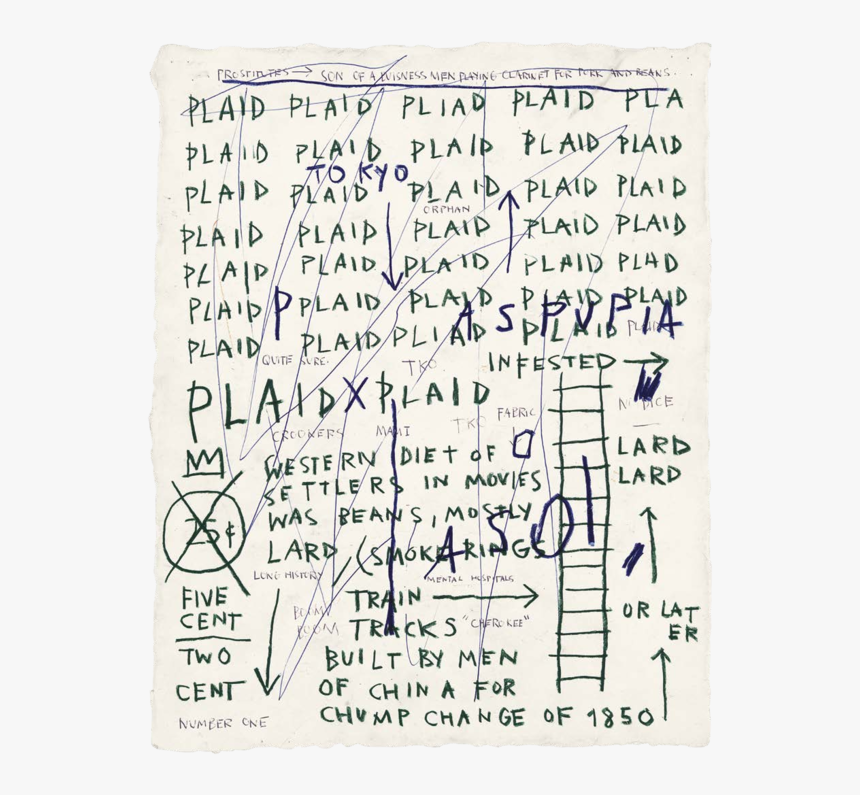 PROSTITUTES → SON OF A BUISNESS MEN PLAYING CLARINET FOR PORK AND BEANS.
PLAID PLAID PLIAD PLAID PLA
PLAID PLAID PLAID PLAID PLAID
TOKYO
PLAID PLAID PLAID PLAID PLAID
ORPHAN
PLAID PLAID PLAID PLAID PLAID
PLAID PLAID PLAID PLAID PLAD
PLAID P PLAID PLAID PLAID PLAID
ASPVPIA
PLAID PLAID PLIAD PLAID
QUITE SURE. TKO INFESTED →
PLAID X PLAID
TKO FABRIC
CROOKERS MAMI
LARD
LARD
WESTERN DIET OF
SETTLERS IN MOVIES
25¢ WAS BEANS, MOSTLY
ASO
LARD (SMOKE RINGS
LONG HISTORY MENTAL HOSPITALS
FIVE
CENT
TRAIN →
BOOM
BOOM
TRACKS "CHEROKEE"
OR LAT
ER
TWO
CENT
BUILT BY MEN
OF CHINA FOR
NUMBER ONE
CHUMP CHANGE OF 1850